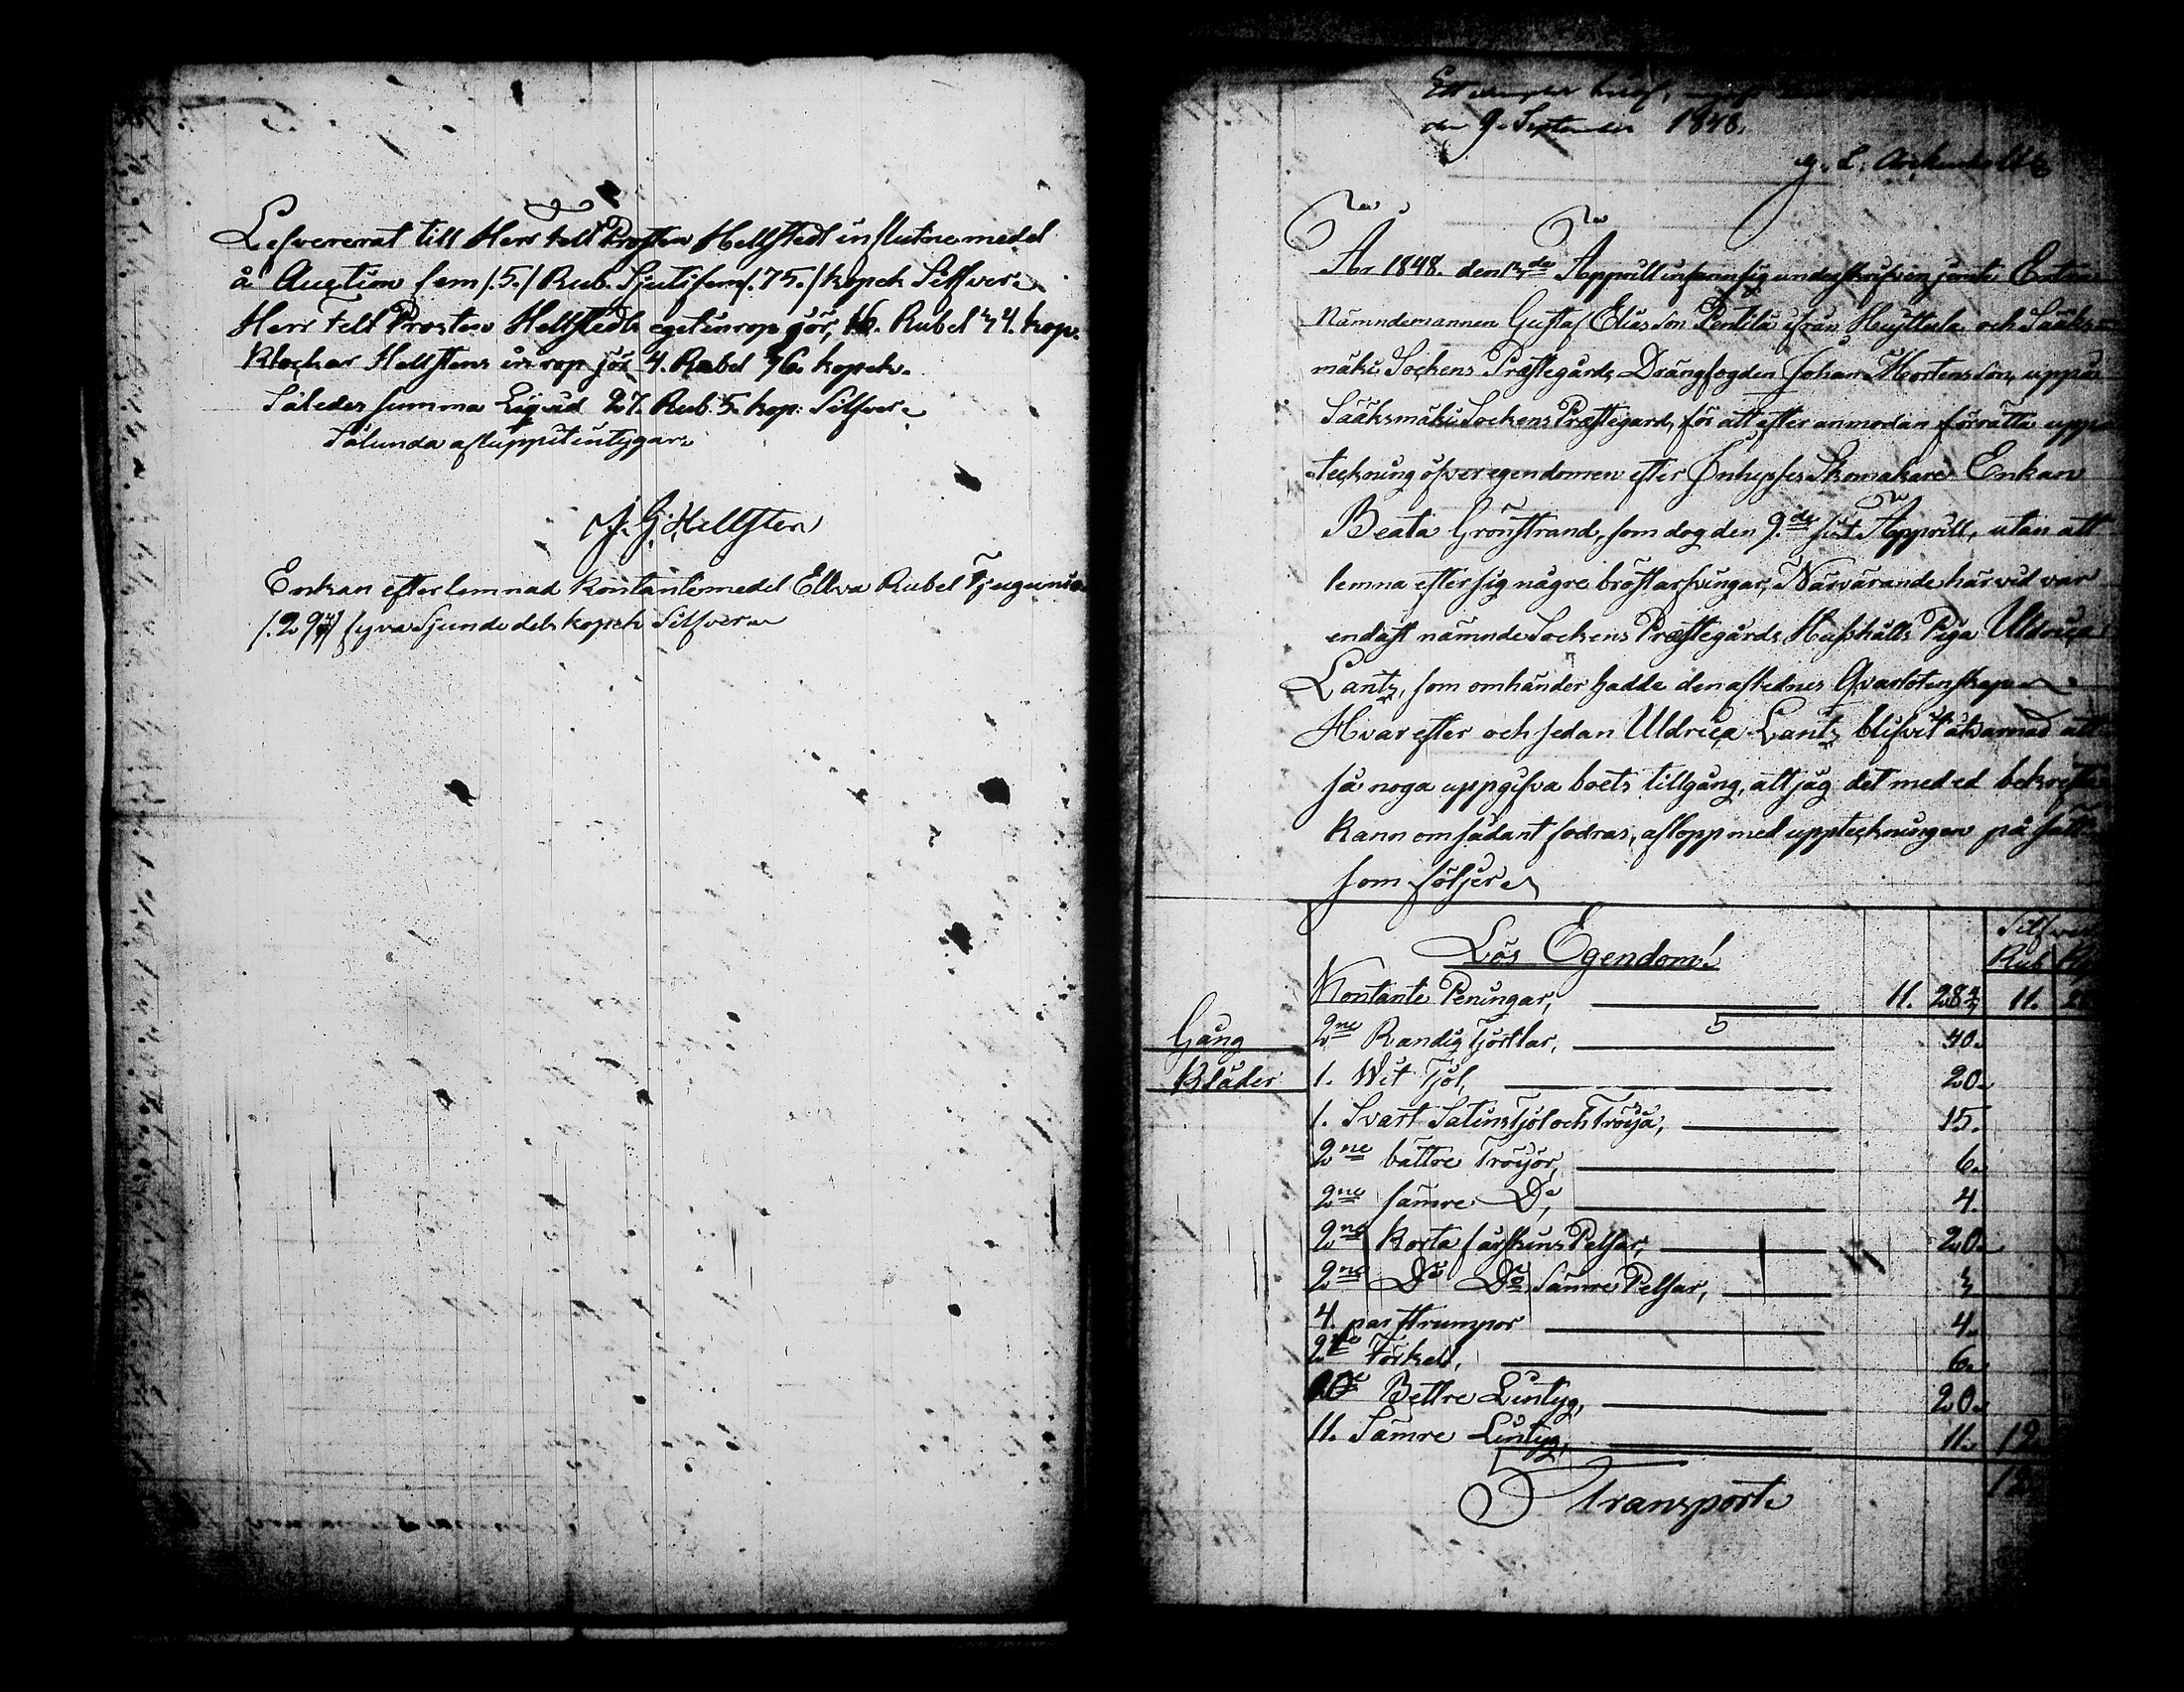 Lefvererat till Herr Felt Prosten Hellstedt influtne medel
å Auction fem /.5./ Rub. Sjutifem /.75./ kopek Silfver.
Herr Felt Prosten Hellstedts eget inrop gör, 16. Rubel 74. kop.
Klockar Hellstens inrop gör 4. Rubel 56. kopek.
Således summa Liqvid 27. Rub. 5. kop: Silfver.
Sålunda afluppit intygar
J. G. Hellsten
Enkan efterlemnad Kontantemedel Ellva Rubel Tjugunio
/.29 4/7/ fyra Sjundedels kopek Silfver
den 9 September 1848.
År 1848. den Apprill infann sig underskrifven jemte Extra
Nämndemannen Gustaf Eliasson Pentilä ifrån Huittula och Sääks-
mäki Sockens Prestegårds Drängfogden Johan Mortensson, uppå
Sääksmäki Sockens Prestegård, för att efter anmodan förrätta upp
teckning öfver egendomen efter Inhyses Skomakare Enkan
Beata Grönstrand, som dog den 9.de sist. Apprill, utan att
lemna efter sig någre bröstarfvingar, Närvarande härvid var
endast nämnde Sockens Prestegårds Hushålls Piga Uldrica
Lantz, som omhänder hadde den aflednes Qvarlåtenskap
Hvarefter och sedan Uldrica Lantz blifvit åtvarnad att
så noga uppgifva boets tillgång, att jag det med ed bekrefta
kann om sådant fodras, aflopp med uppteckningen på sätt
som följer
Silfver
Lös Egendom! Rub
Kontante Peningar, 11. 28 4/7 11.
Gång 2ne Randig Tjortlar, 40.
Kläder 1. Wit Tjol, 20.
1. Svart Satins Tjol och Tröija, 15.
2ne bättre Tröijor, 6.
2ne sämre Do, 4.
2ne Korta fårskins Pelsar, 20.
2ne Do Do Sämre Pelsar, 3
4. par strumpor 4.
2ne Förkel, 6.
20 Bettre Lintyg, 20.
11. Sämre Lintyg, 11. 12.
Transport